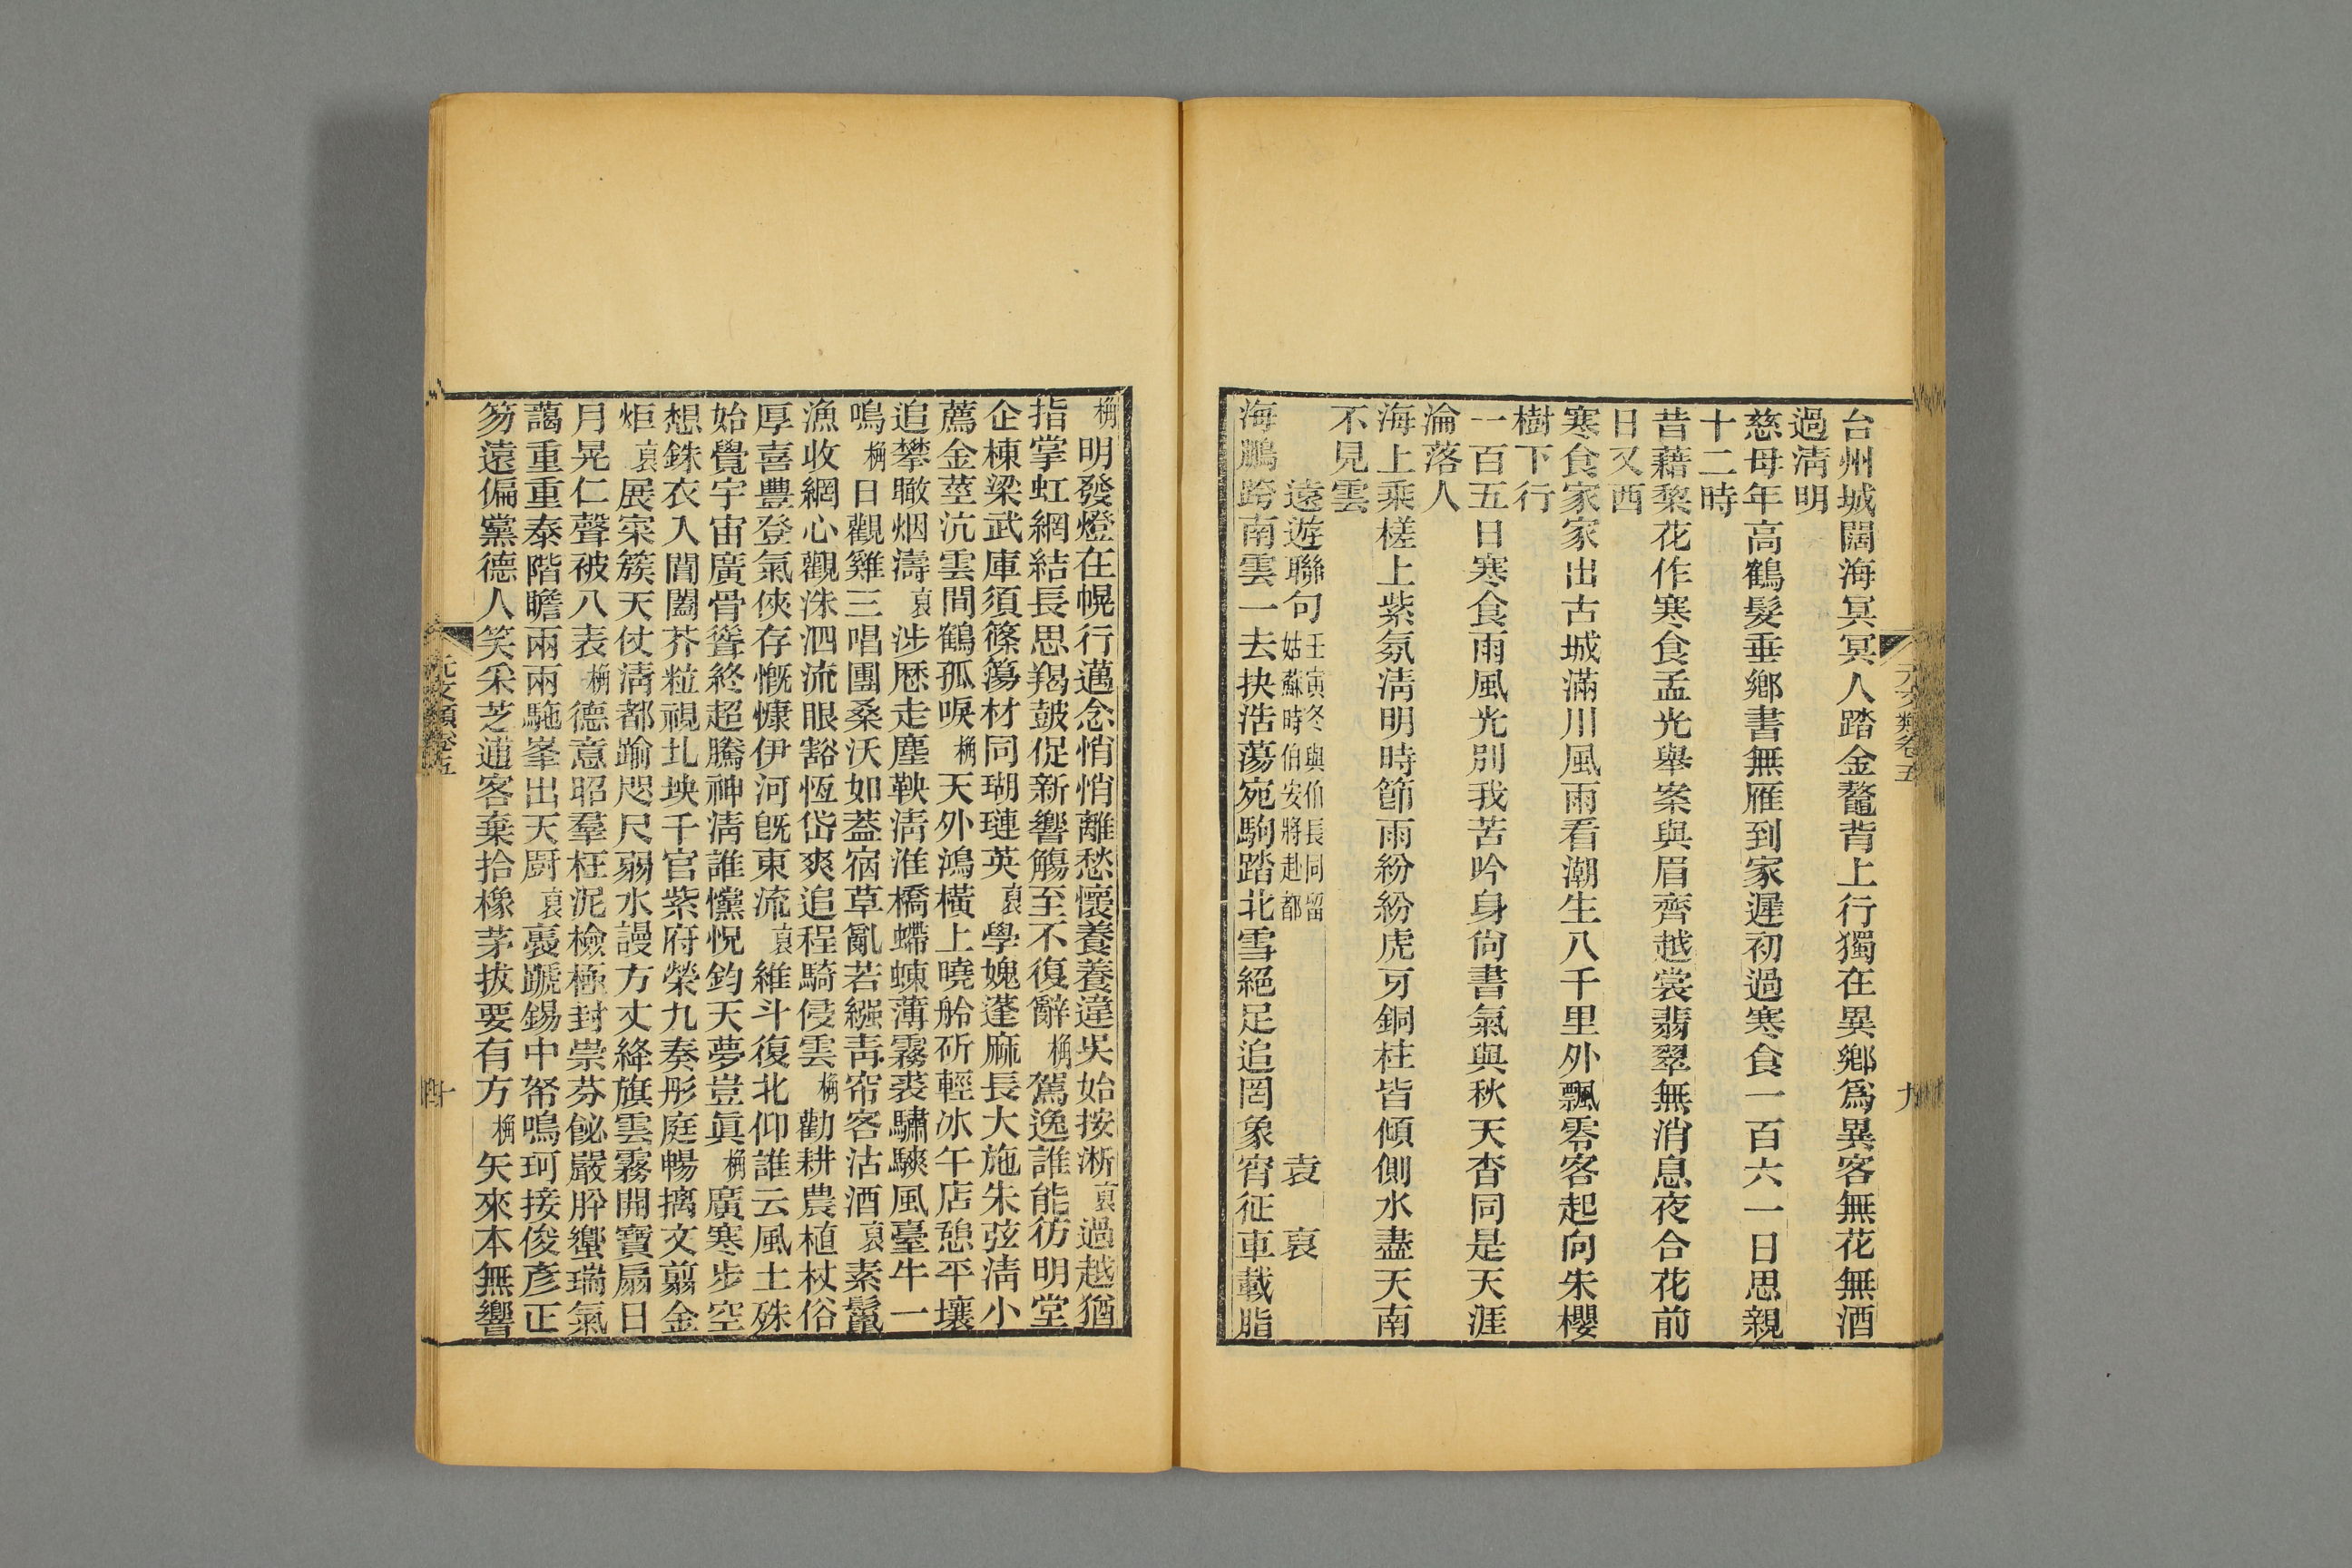 元文類卷五
九
台州城闊海冥冥人踏金鼇背上行獨在異鄉爲異客無花無酒
過淸明
慈母年高鶴髮垂鄉書無雁到家遲初過寒食一百六一日思親
十二時
昔藉棃花作寒食孟光舉案與眉齊越裳翡翠無消息夜合花前
日又西
寒食家家出古城滿川風雨看潮生八千里外飄零客起向朱櫻
樹下行
一百五日寒食雨風光別我苦吟身尙書氣與秋天杳同是天涯
淪落人
海上乘槎上紫氛淸明時節雨紛紛虎牙銅柱皆傾側水盡天南
不見雲
遠遊聯句
壬寅冬與伯長同留
姑蘇時伯安將赴都
袁裒
海鵬跨南雲一去抉浩蕩宛駒踏北雪絕足追罔象宵征車載脂
桷明發燈在幌行邁念悄悄離愁懷養養違吳始按淅裒過越猶
指掌虹網結長思羯鼓促新響觴至不復辭桷駕逸誰能彷明堂
企棟梁武庫須篠簜材同瑚璉英裒學媿蓬麻長大施朱弦淸小
薦金莖沆雲間鶴孤唳桷天外鴻橫上曉舲斫輕冰午店憩平壤
追攀瞰烟濤裒涉歷走塵鞅淸淮橋螮蝀薄霧裘驌騻風臺牛一
鳴桷日觀雞三唱團桑沃如葢宿草亂若繦靑帘客沽酒裒素鬣
漁收網心觀洙泗流眼豁恆岱爽追程騎侵雲桷勸耕農植杖俗
厚喜豐登氣俠存慨慷伊河旣東流裒維斗復北仰誰云風土殊
始覺宇宙廣骨聳終超騰神淸誰戃怳鈞天夢豈眞桷廣寒步空
想銖衣入閶闔芥粒視圠坱千官紫府榮九奏彤庭暢摛文翦金
炬裒展宷簇天仗淸都踰咫尺弱水謾方丈絳旗雲霧開寶扇日
月晃仁聲被八表桷德意昭羣枉泥檢極封崇芬飶嚴肸蠁瑞氣
藹重重泰階瞻兩兩駞峯出天厨裒褭蹏錫中帑鳴珂接俊彥正
笏遠偏黨德人笑采芝逋客棄拾橡茅拔要有方桷矢來本無響
元文類卷五
十